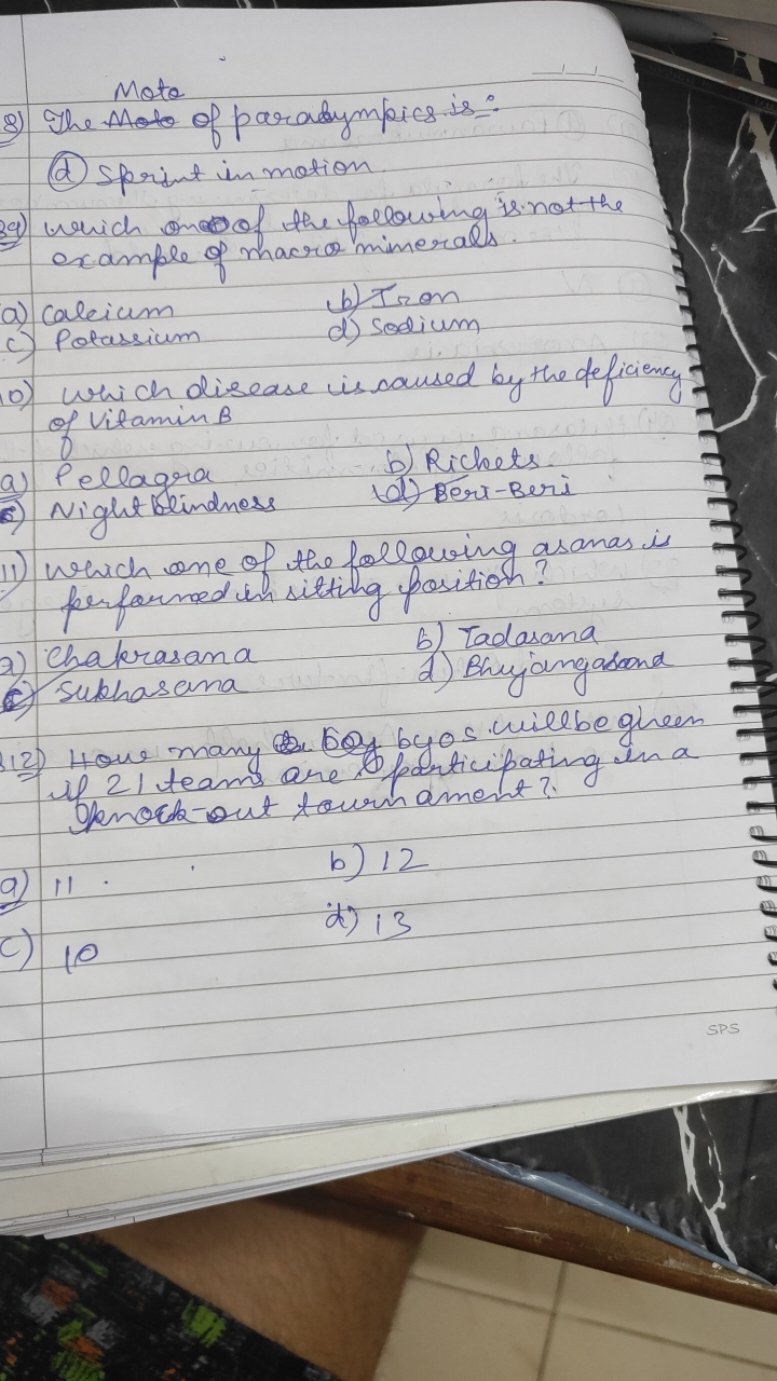 Moto
8) The Moto of paralympics is :
(d) Sprint in motion.
39) which one of the following is not the
example of macro minerals.
a) Calcium b) Iron
c) Potassium d) Sodium
10) which disease is caused by the deficiency
of Vitamin B
a) Pellagra b) Rickets.
c) Night blindness d) Beri-Beri
11) which one of the following asanas is
performed in sitting position?
a) Chakrasana b) Tadasana
c) Sukhasana d) Bhujangasana
12) How many byos will be given
if 21 teams are participating in a
knock-out tournament?
a) 11 . b) 12
c) 10 d) 13
SPS